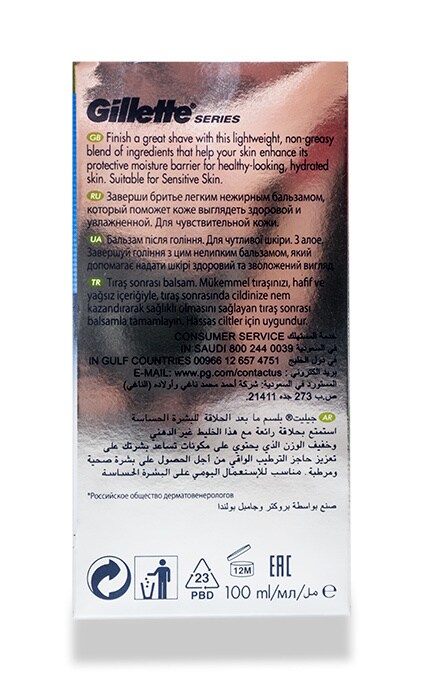 Gillette® SERIES
GB Finish a great shave with this lightweight, non-greasy
blend of ingredients that help your skin enhance its
protective moisture barrier for healthy-looking, hydrated
skin. Suitable for Sensitive Skin.
RU Заверши бритье легким нежирным бальзамом,
который поможет коже выглядеть здоровой и
увлажненной. Для чувствительной кожи.
UA Бальзам після гоління. Для чутливої шкіри. З алое.
Завершуй гоління з цим нелипким бальзамом, який
допомагає надати шкірі здоровий та зволожений вигляд.
TR Tıraş sonrası balsam. Mükemmel tıraşınızı, hafif ve
yağsız içeriğiyle, tıraş sonrasında cildinize nem
kazandırarak sağlıklı olmasını sağlayan tıraş sonrası
balsamla tamamlayın. Hassas ciltler için uygundur.
CONSUMER SERVICE خدمة المستهلك
IN SAUDI 800 244 0039 في السعودية
IN GULF COUNTRIES 00966 12 657 4751 في دول الخليج
E-MAIL: www.pg.com/contactus : بريد إلكتروني
المستورد في السعودية: شركة أحمد محمد ناغي وأولاده (الناغي)
ص.ب 273 جده 21411.
AR جيليت® بلسم ما بعد الحلاقة للبشرة الحساسة
استمتع بحلاقة رائعة مع هذا الخليط غير الدهني
وخفيف الوزن الذي يحتوي على مكونات تساعد بشرتك على
تعزيز حاجز الترطيب الواقي من أجل الحصول على بشرة صحية
ومرطبة. مناسب للإستعمال اليومي على البشرة الحساسة
*Российское общество дерматовенерологов
صنع بواسطة بروكتر وجامبل بولندا
23
PBD
12M
EAC
100 ml/мл/مل e